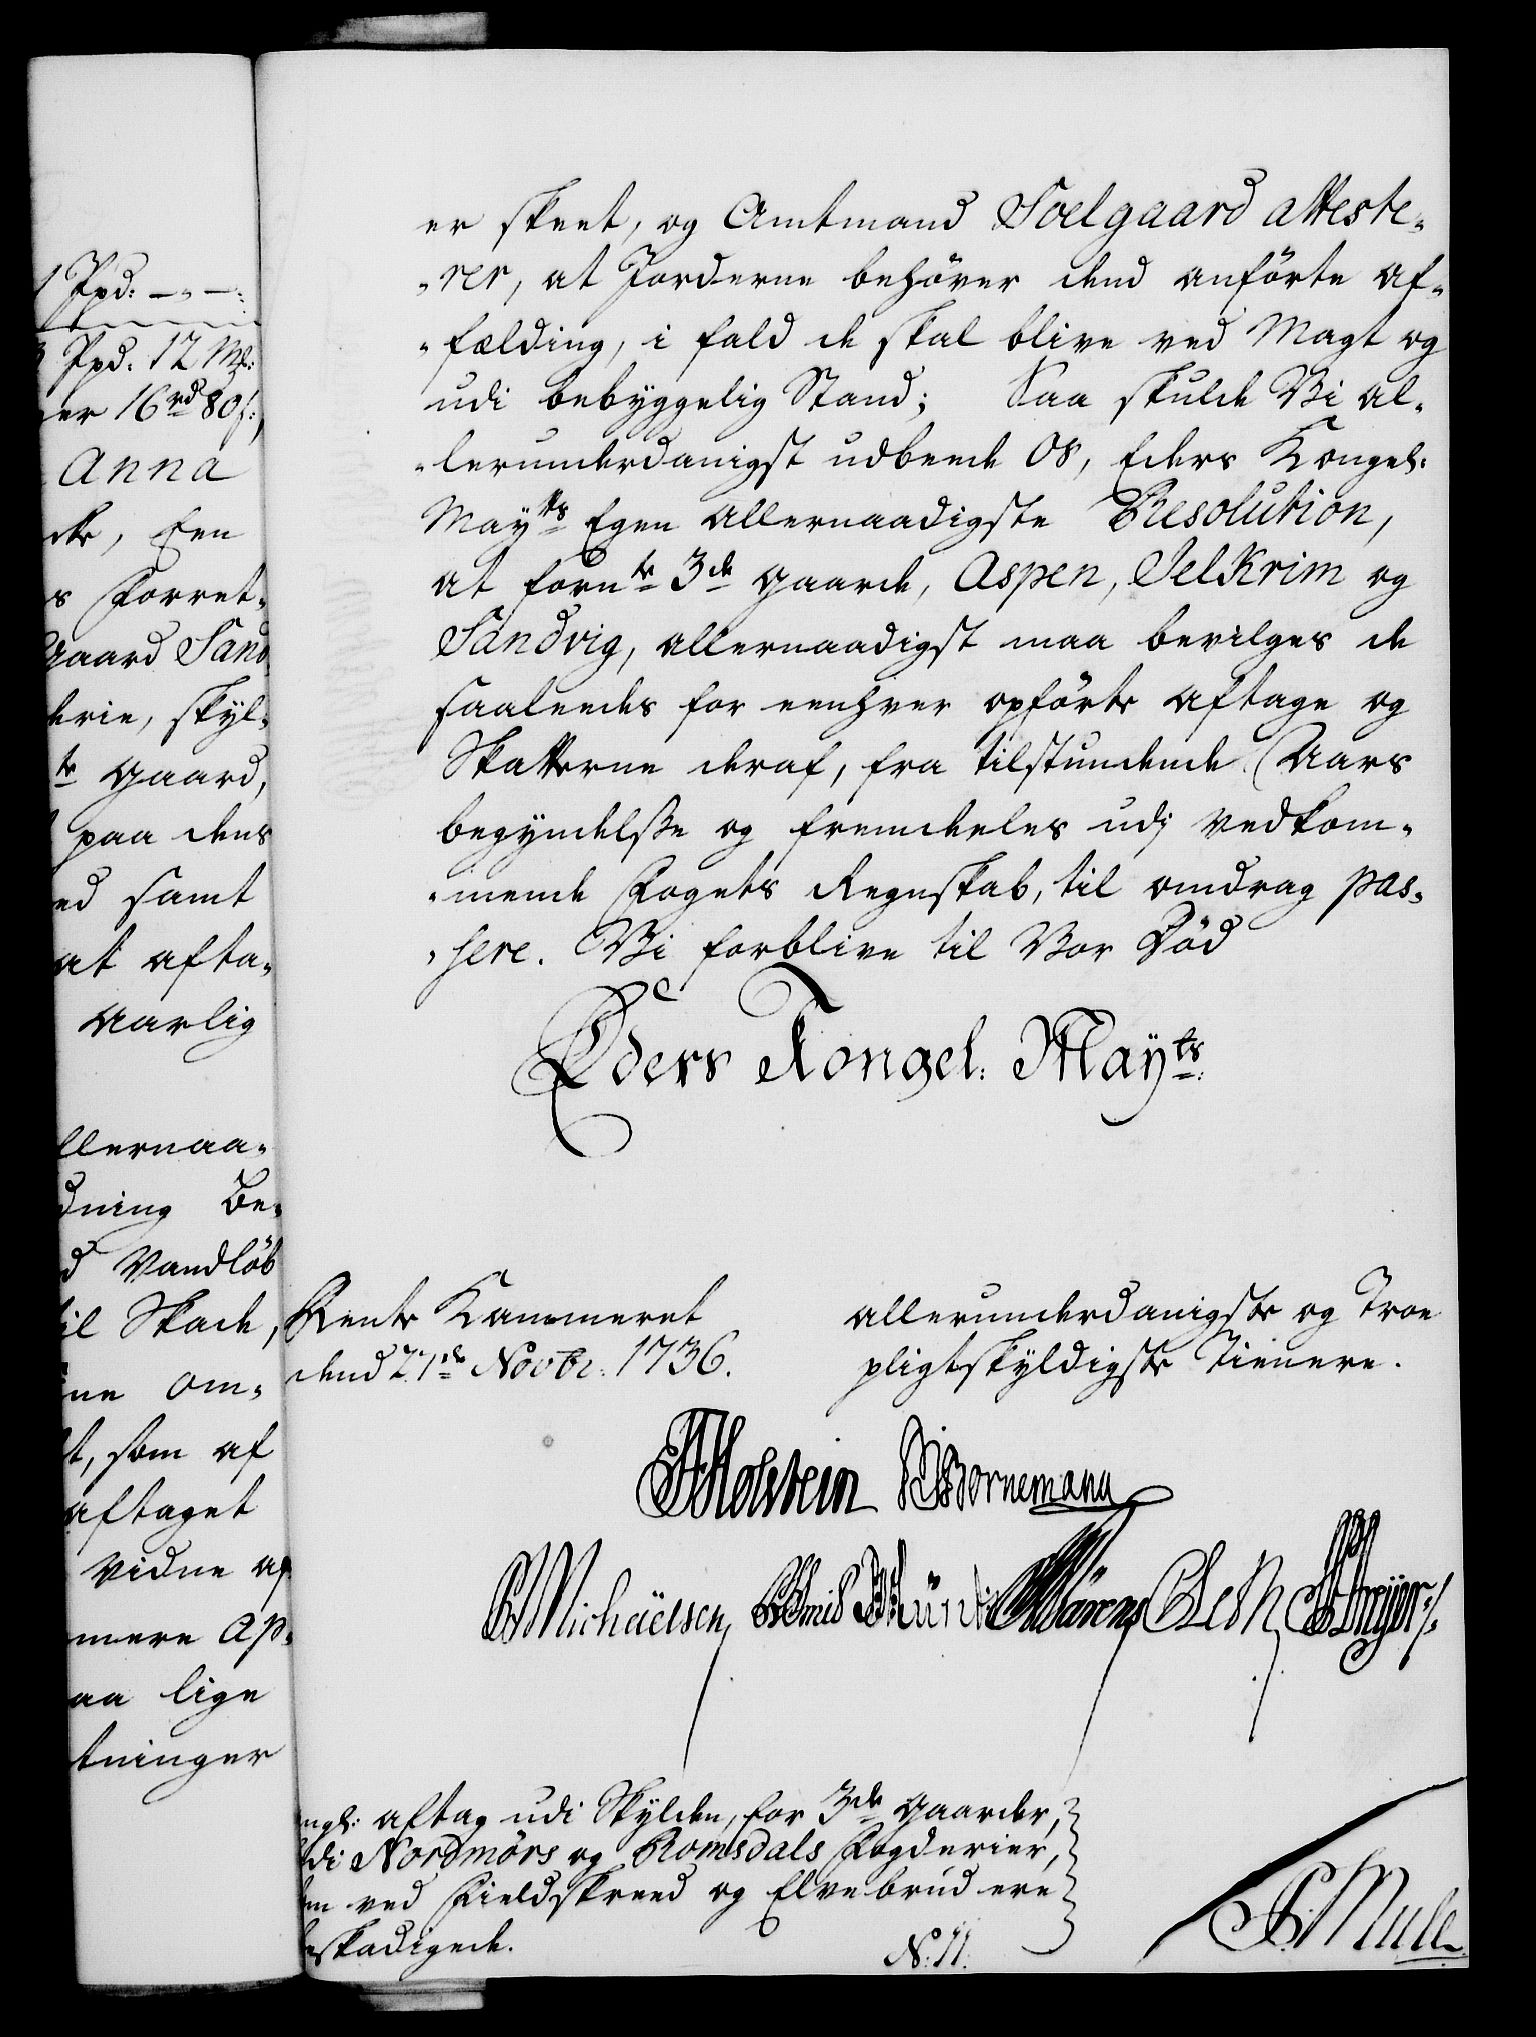 1 Ppd: — " — :
Ppd. 12 Mk:
er 16 rd 80 s:,
Anna
dte, Een
s Forret-
Gaard Sand
derie, skyl-
te Gaard,
paa dens
ed samt
at afta-
Aarlig
llernaa-
dning be-
d Vandløb
til Skade,
ine om-
t, som af
aftaget
Vidne af
mere ap-
aa lige
tninger
er skeet, og Amtmand Soelgaard atteste-
-rer, at Jorderne behöver dend anförte af-
-fælding, i fald de skal blive ved Magt og
udi bebyggelig Stand; Saa skulde Vi al-
-lerunderdanigst udbede Os, Eders Kongel:
Mayts Egen allernaadigste Resolution,
at fornte 3de Gaarde, Aspen, Selkrim og
Sandvig, allernaadigst maa bevilges de
saaleedes for eenhver opförte aftage og
Skatterne deraf, fra tilstundende Aars
begyndelsse og fremdeeles udj vedkom-
-mende Fogets Regnskab, til omdrag pas-
-sere. Vi forblive til Vor Död
Eders Kongel: Mayts:
Rente Kammeret
dend 21de Novbr: 1736.
allerunderdanigste og Troe
pligtskyldigste Tienere.
Holstein Bornemann
Michaëlsen
ngl: aftag udi Skylden, for 3de Gaarder,
udi Nordmörs og Romsdals Fogderier,
om ved Fieldskreed og Elvebrud ere
beskadigede.
N: 11.